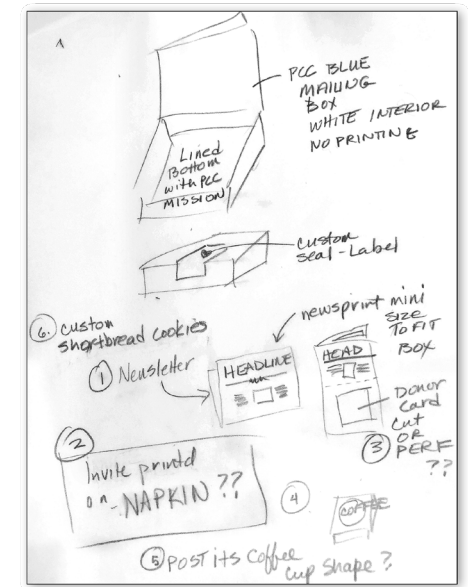 1
PCC BLUE
MAILING
BOX
WHITE INTERIOR
NO PRINTING
Lined
Bottom
with PCC
MISSION
custom
seal-Label
6. custom
shortbread cookies
newsprint mini
SIZE
TO FIT
BOX
1 Newsletter
HEADLINE
HEAD
DONOR
Card
Cut
OR
PERF
??
3
2
Invite printd
on - NAPKIN ??
4
COFFEE
5 POST ITS Coffee
cup shape ?